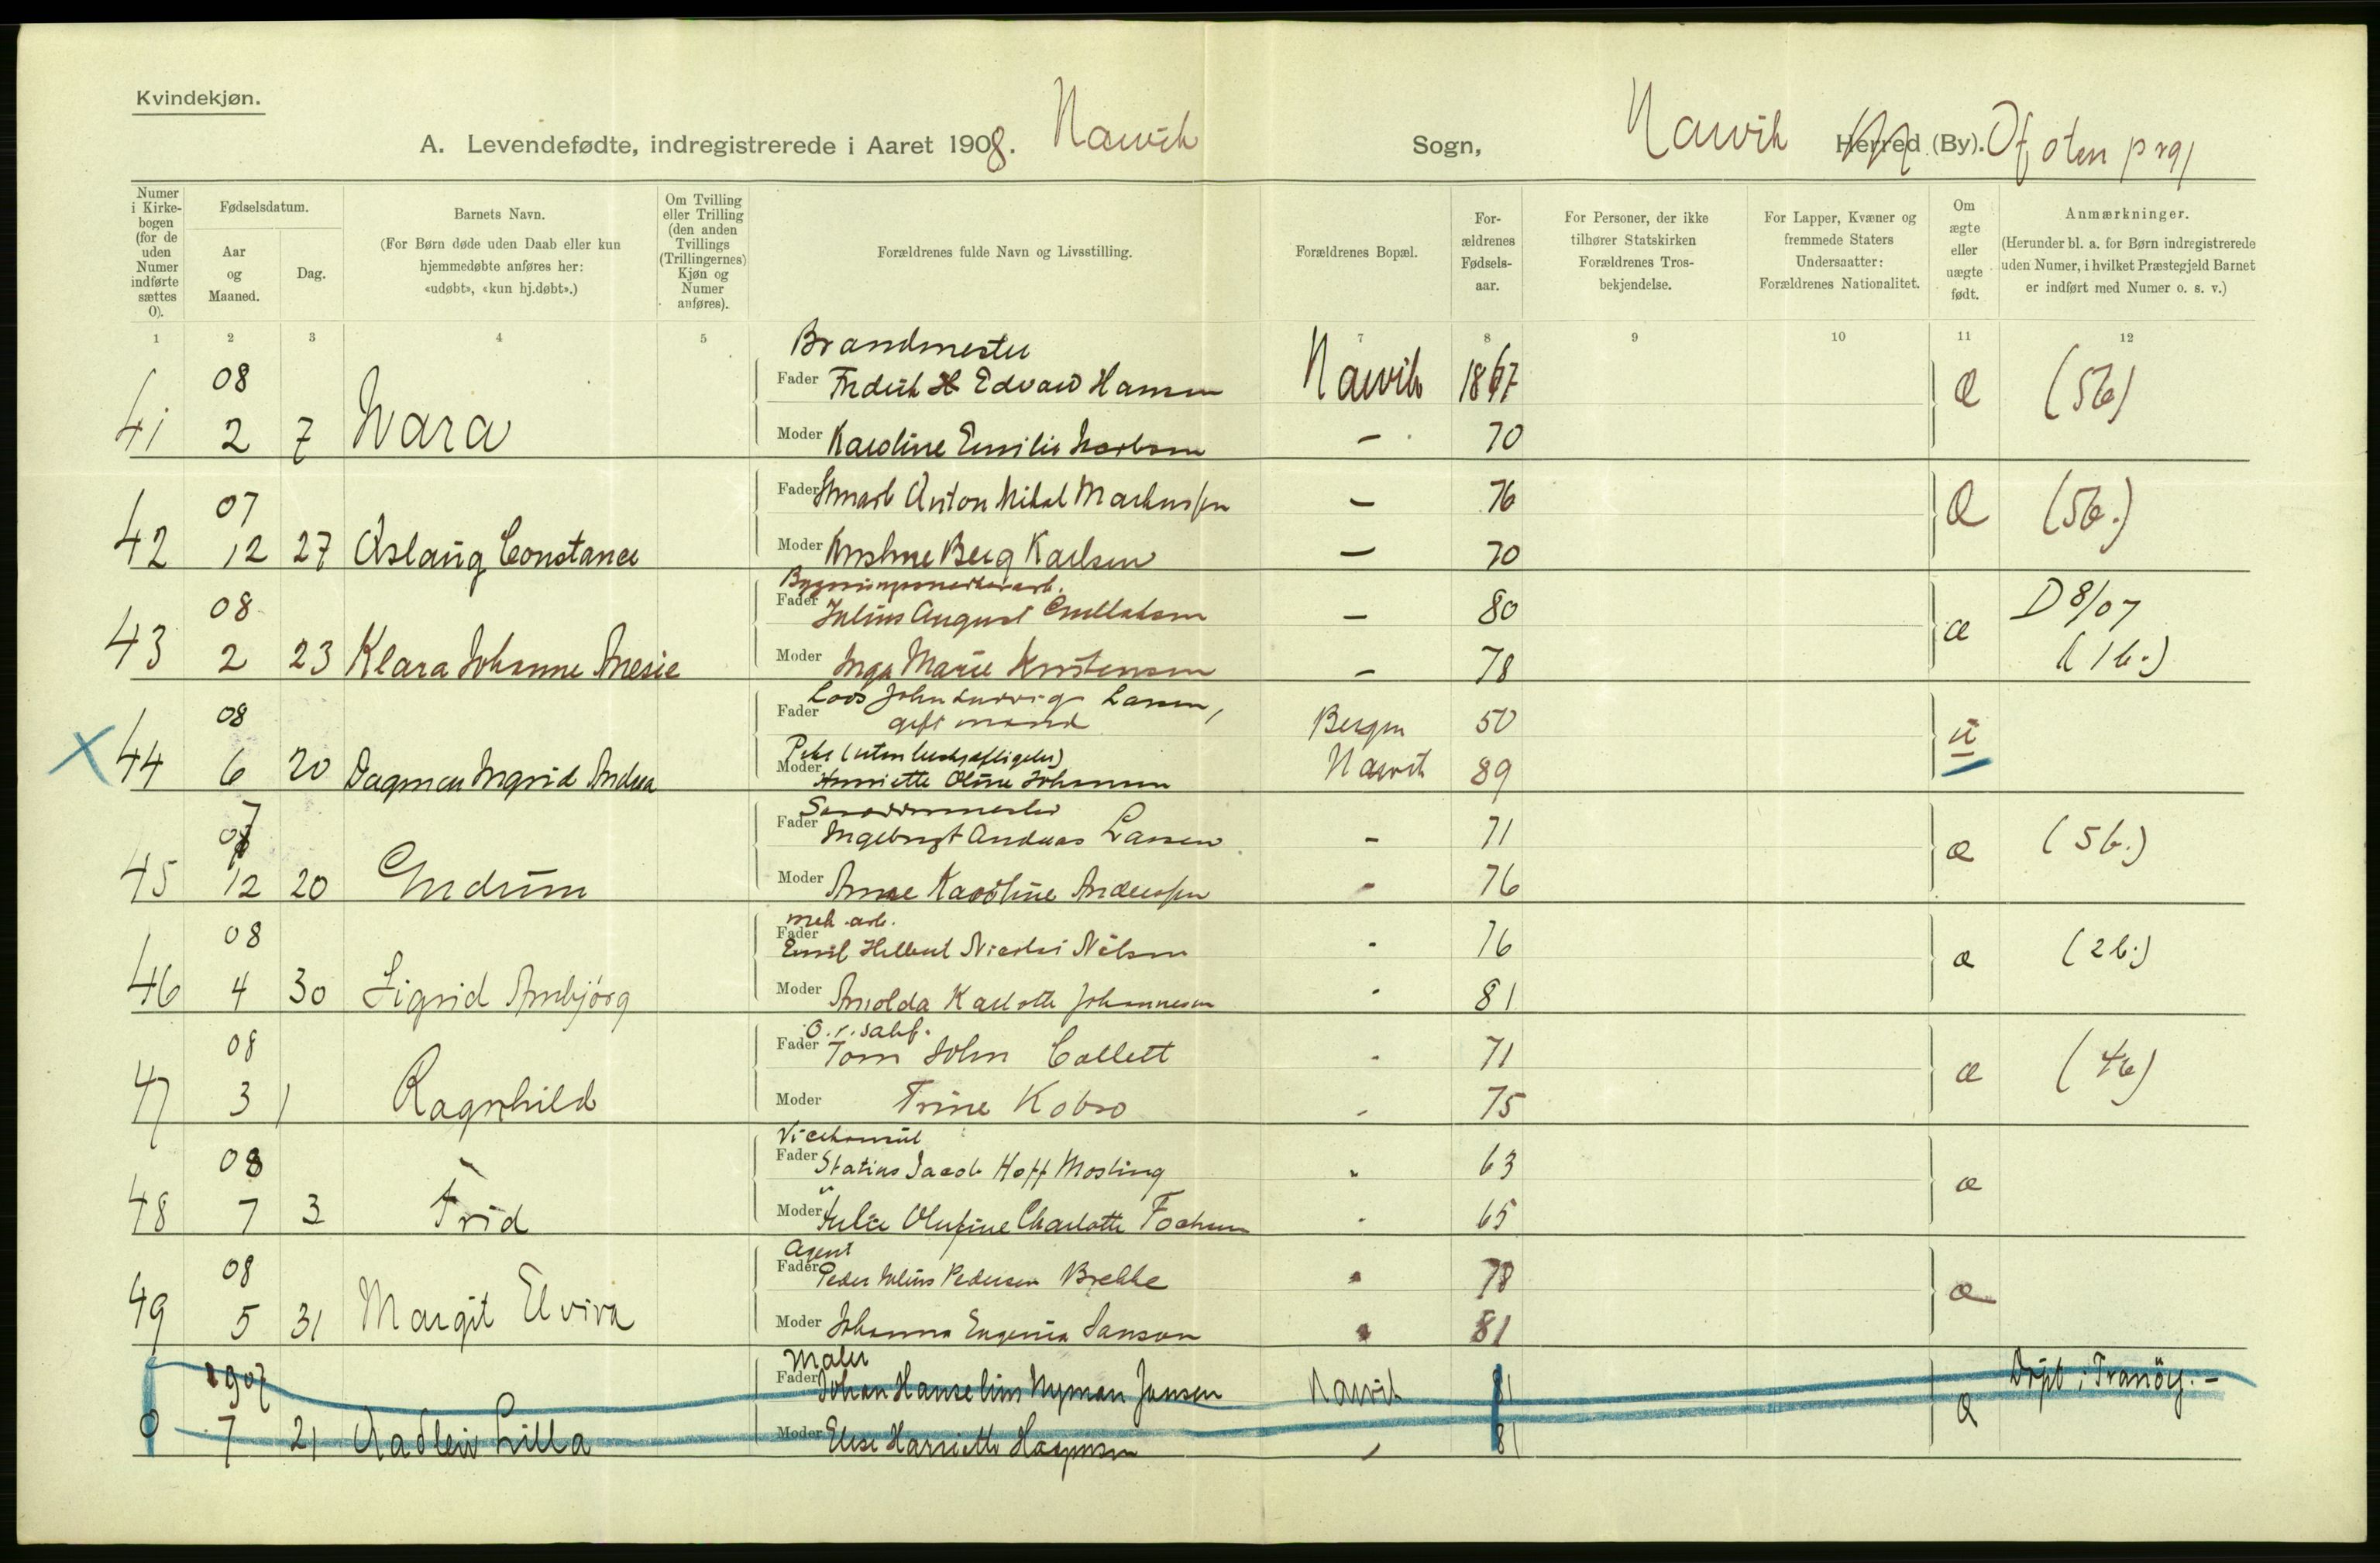 Kvindekjøn.
A. Levendefødte, indregistrerede i Aaret 1908. Narvik Sogn, Narvik Herred (By). Ofoten prgj
Numer i Kirke-bogen (for de uden Numer indførte sættes 0).
Fødselsdatum.
Aar og Maaned.
Dag.
Barnets Navn.
(For Børn døde uden Daab eller kun hjemmedøbte anføres her: «udøbt», «kun hj.døbt».)
Om Tvilling eller Trilling (den anden Tvillings (Trillingernes) Kjøn og Numer anføres).
Forældrenes fulde Navn og Livsstilling.
Forældrenes Bopæl.
For-ældrenes Fødsels-aar.
For Personer, der ikke tilhører Statskirken Forældrenes Tros-bekjendelse.
For Lapper, Kvæner og fremmede Staters Undersaatter: Forældrenes Nationalitet.
Om ægte eller uægte født.
Anmærkninger.
(Herunder bl. a. for Børn indregistrerede uden Numer, i hvilket Præstegjeld Barnet er indført med Numer o. s. v.)
1 2 3 4 5 7 8 9 10 11 12
Brandmester
08 Fader Fredrik H Edvard Hansen Narvik 1867 æ (5 b)
41 2 7 Wara Moder Karoline Emilie 70
07 Fader Anton Mikal Markussen — 76 æ (5 b.)
42 12 27 Aslaug Constance Moder Kristine Berg Karlsen — 70
08 Fader Julius August — 80 æ D 8/07
43 2 23 Klara Johanne Anesie Moder Inga Marie Kristensen — 78 (1 b.)
08 Fader Lods John Ludvig Larsen, gift mand Bergen 50 u
Pike
44 6 20 Dagmar Ingrid Andrea Moder Henriette Oline Johansen Narvik 89
07 Fader Ingebrigt Andreas Larsen - 71 æ (5 b.)
45 12 20 Gudrun Moder Anne Karoline Anderssen - 76
mek. arb.
08 Fader Emil Nicolai Nilsen - 76 æ (2 b.)
46 4 30 Sigrid Arnbjørg Moder Arnolda Karlotte Johannesen - 81
O.r. sakf.
08 Fader Tom John Collett - 71 æ (4 b)
47 3 1 Ragnhild Moder Trine Kobro - 75
Vicekonsul
08 Fader Statius Jacob Hoff Mosling - 63 æ
48 7 3 Frid Moder Julie Olufine Charlotte 65
Agent
08 Fader Peder Julius Pedersen Brekke - 78 æ
49 5 31 Margit Elvira Moder Johanna Eugenia Janson - 81
Maler
1907 Fader Johan Hanselius Nyman Jansen Narvik 81 æ Døpt i Tranöy. -
0 7 21 Aadleiv Lilla Moder Elise Harriette 81